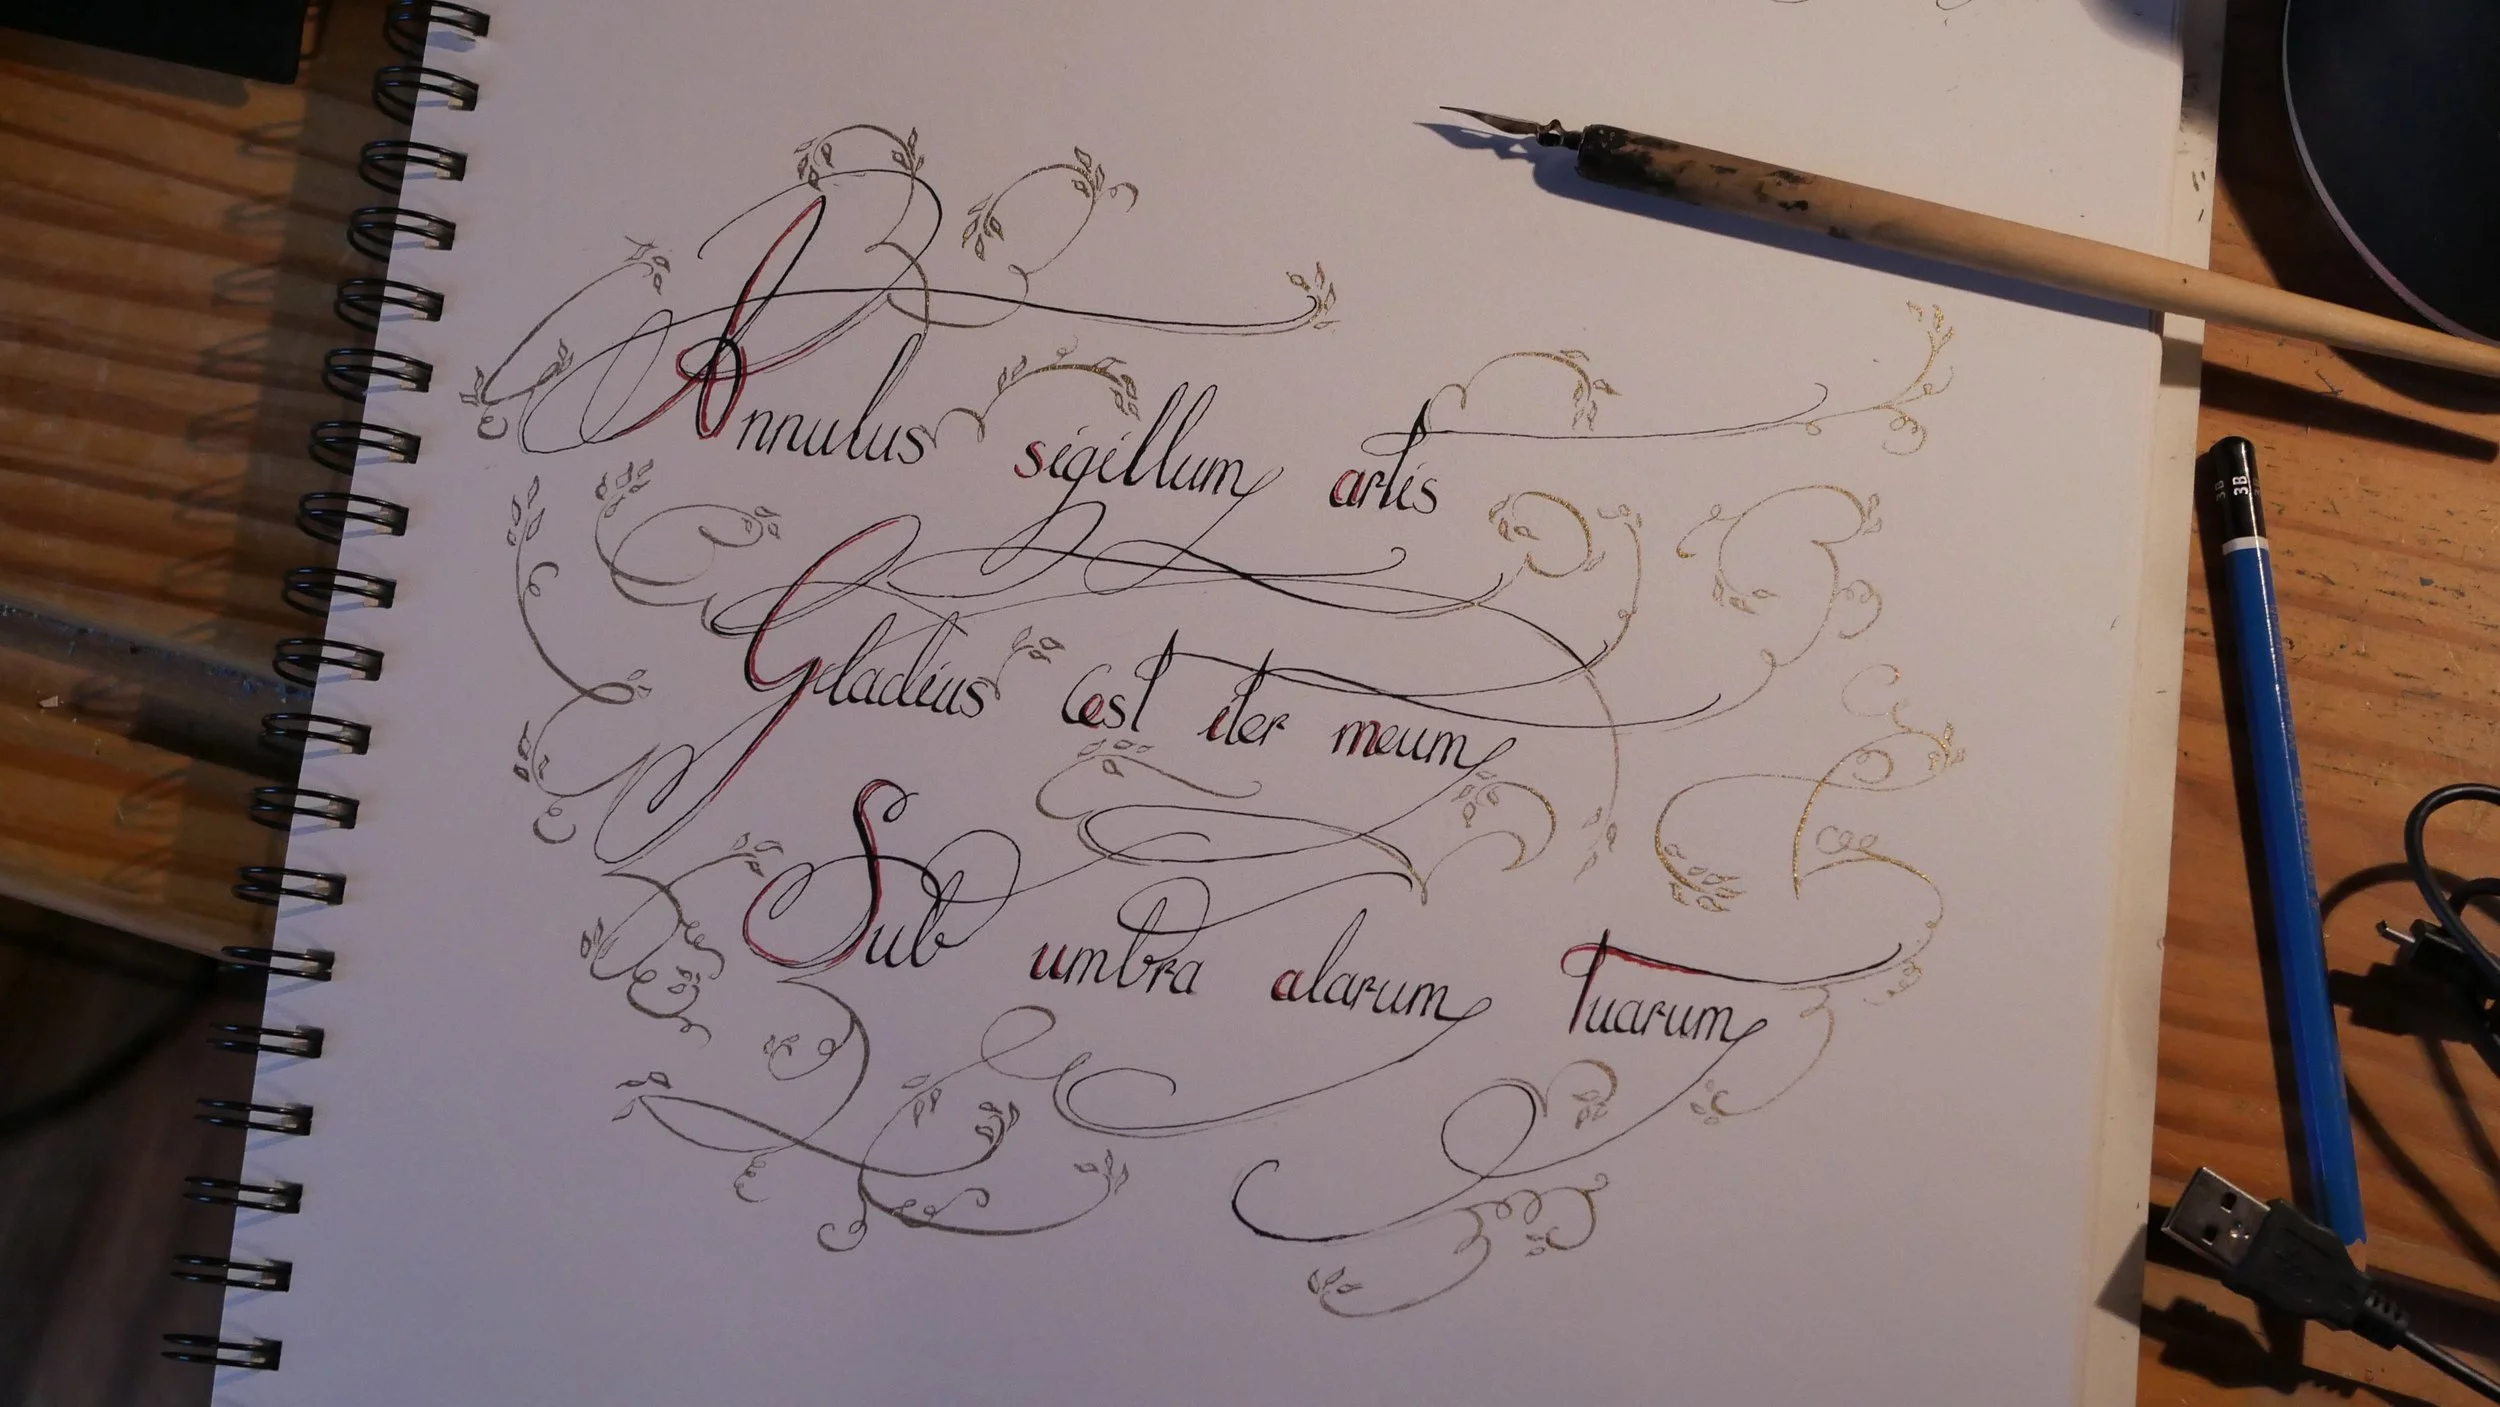 Annulus sigillum artis
Gladius est iter meum
Sub umbra alarum Tuarum
3B 3B